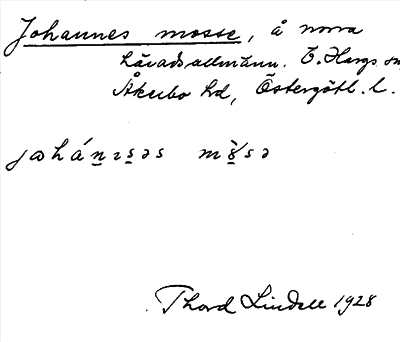 Johannes mosse, å norra
häradsallmänn. Ö. Hargs sn,
Åkerbo hd, Östergötl. l.
Thord Lindell 1928